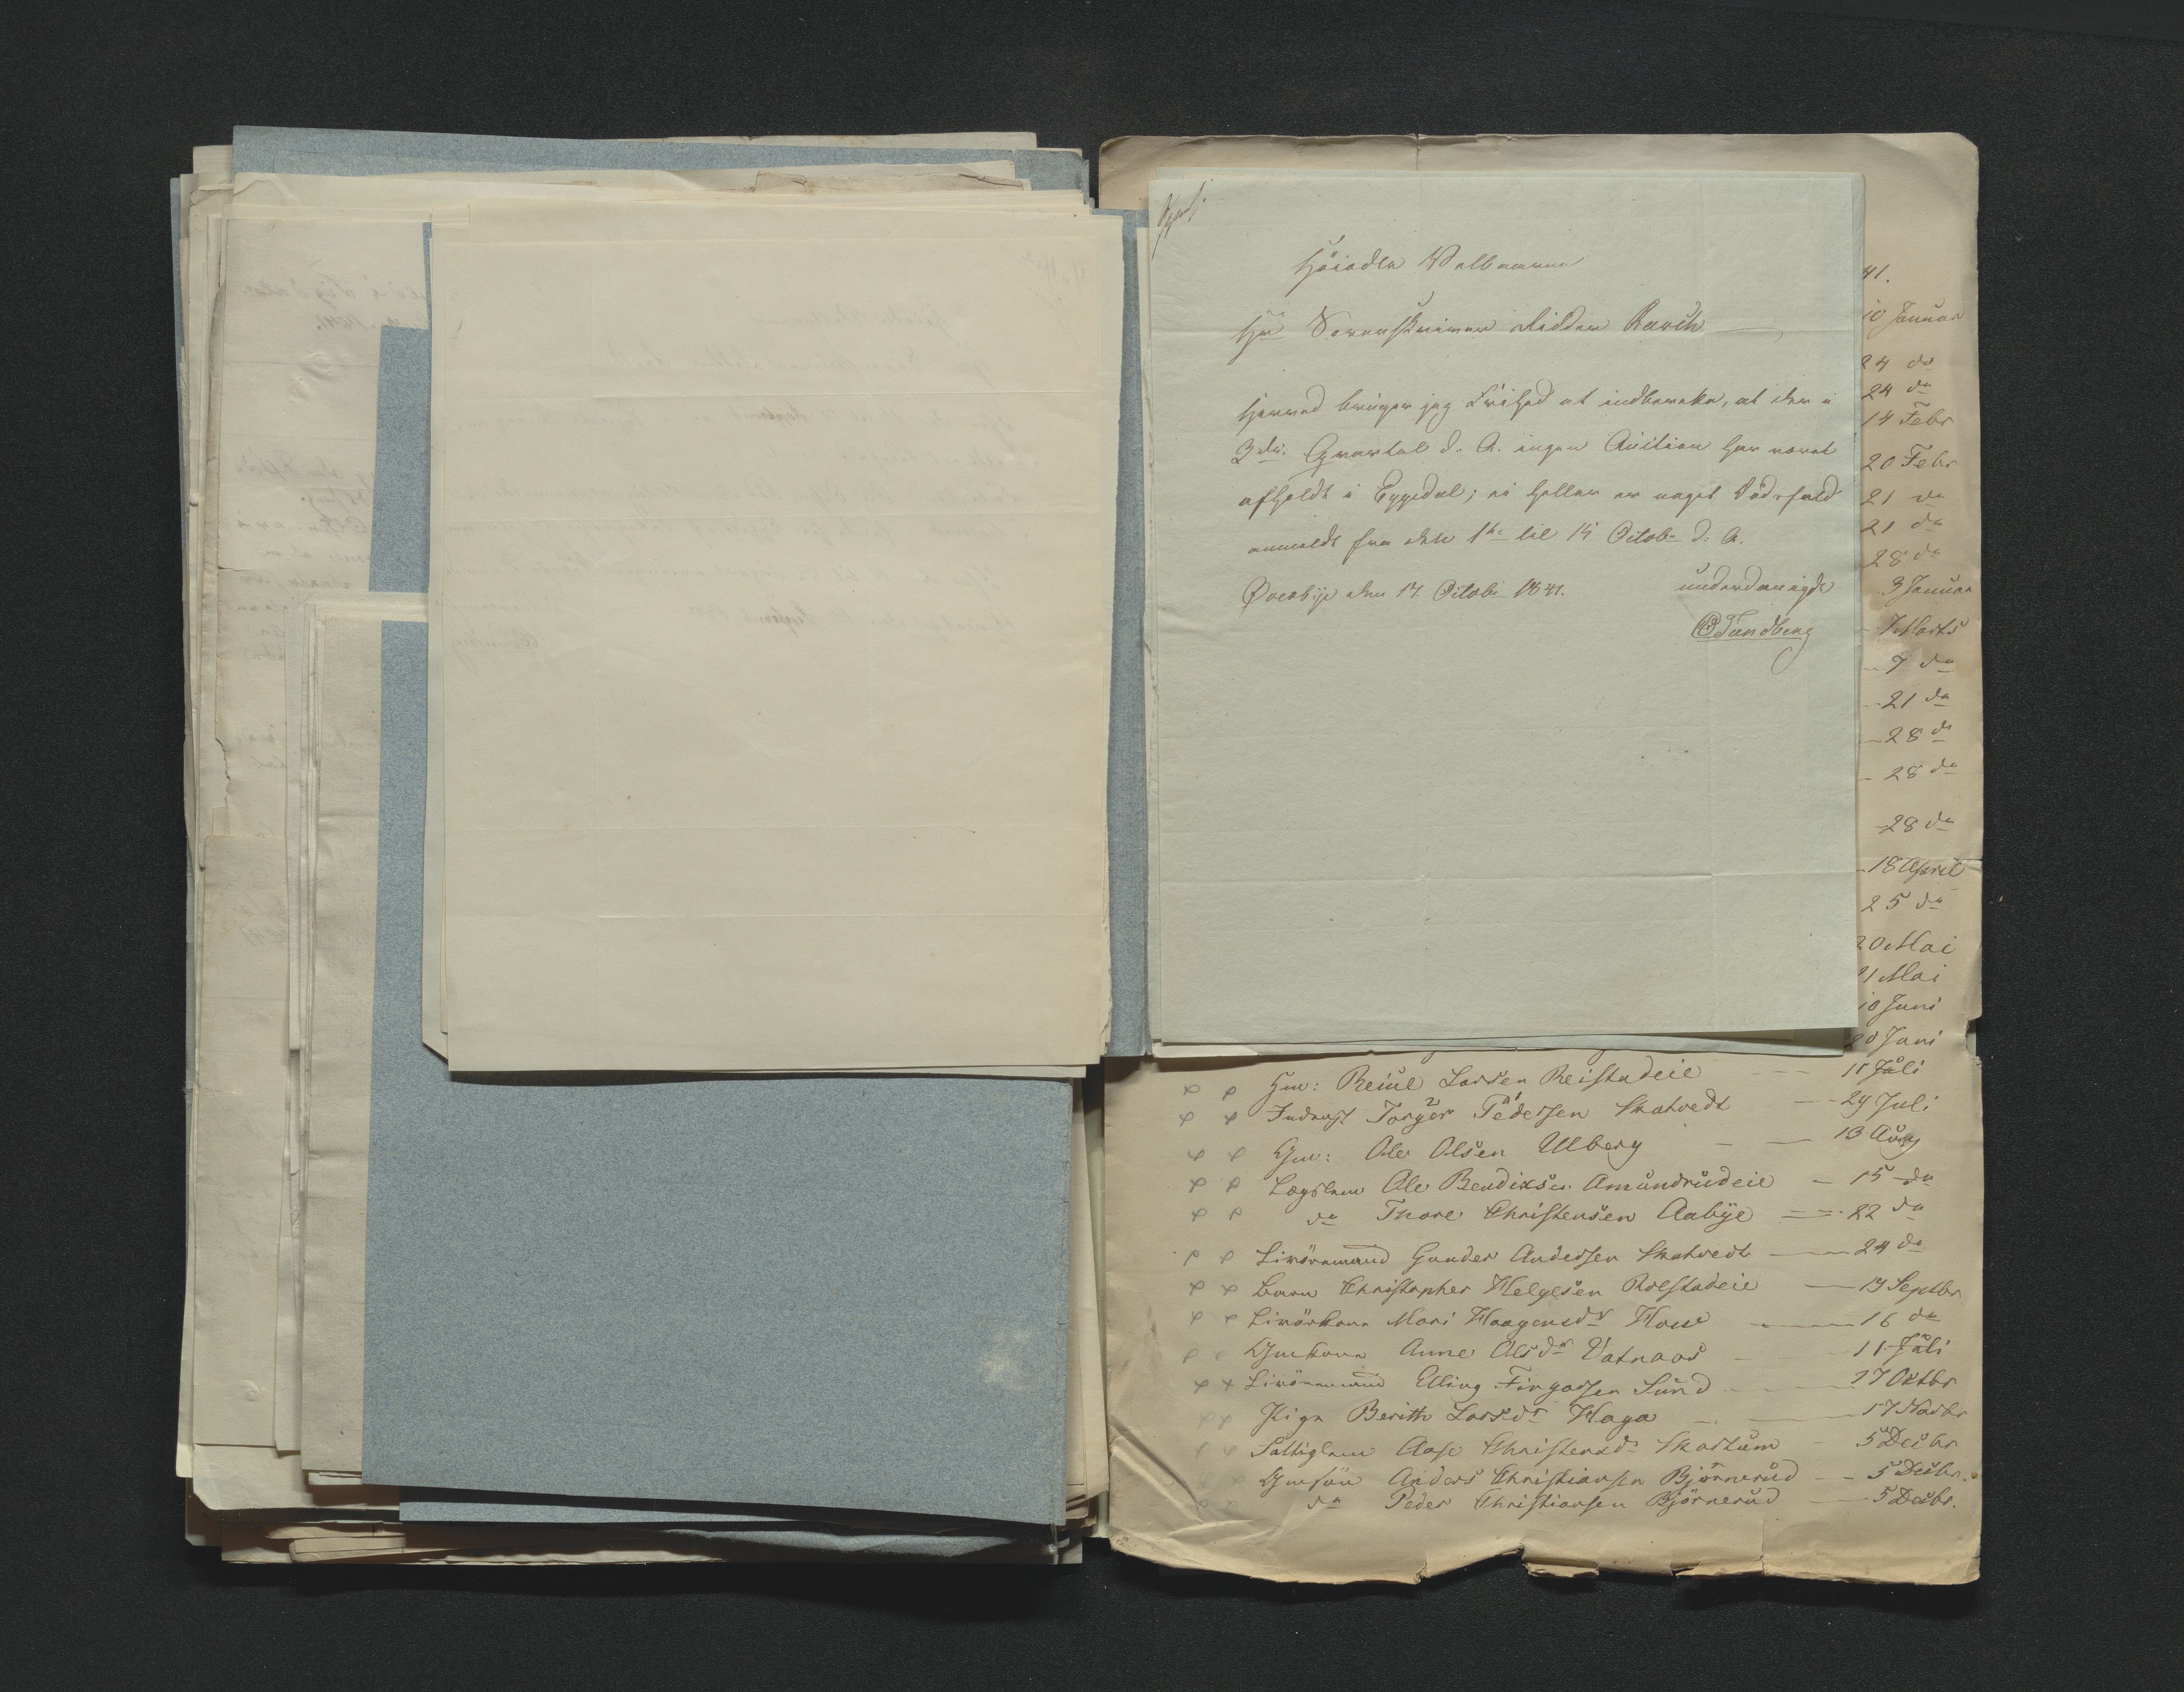 Høiædle Velbaarne
Hr Sorenskriver Ridder Rasch
Herved bruger jeg Friehed at indberette, at der i
3die Qvartal d. A. ingen Auction har været
afholdt i Eggedal; ei heller er noget Dödsfald
anmeldt fra den 1te til 15 Octobr d. A.
den 17 Octobr 1841.
underdanigst
Tandberg
41.
10 Januar
24 do
24 do
14 Febr
20 Febr
21 do
21 do
28 do
3 Januar
7 Marts
7 do
21 do
28 do
28 do
28 do
18 April
25 do
20 Mai
21 Mai
10 Juni
20 Juni
Gm: Reiul Larsen Reistadeie 11 Juli
Inderst Torger Pedersen Skatvedt 29 Juli
Gm: Ole Olsen Ulberg 13 Aug
Lægslem Ole Bendixsen Amundrudeie 15 do
do Thore Christensen Aabye 22 do
Livöremand Gunder Andersen Skatvedt 24 do
Barn Christopher Helgesen Rolstadeie 13 Septbr
Livörkone Mari Haagensdr 16 do
Gmkone Anne Olsdr Vatnaas 11 Juli
Livöremand Elling Fingarsen Sund 27 Oktbr
Pige Berith Larsdr Haga 17 Novbr
Aase Christensdr Skartum 5 Decbr
Gmsön Anders Christiansen Björnerud 5 Decbr.
do Peder Christiansen Björnerud 5 Decbr.